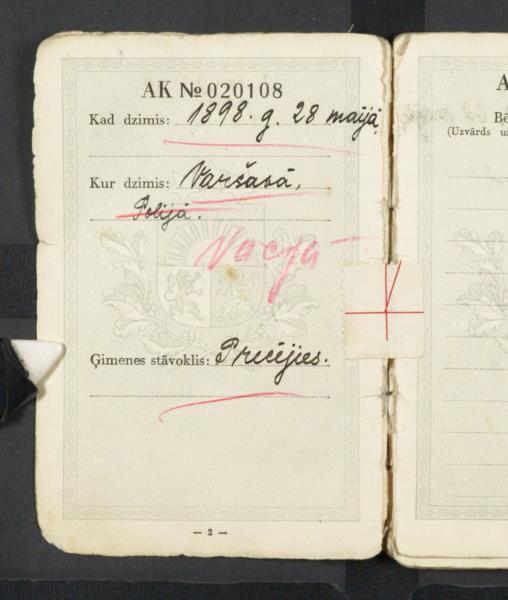 AK № 020108
Kad dzimis: 1898. g. 28 maijā
Kur dzimis: Varšavā,
Polijā.
Vācijā
Ģimenes stāvoklis: Precējies.
— 2 —
A
Bē
(Uzvārds u